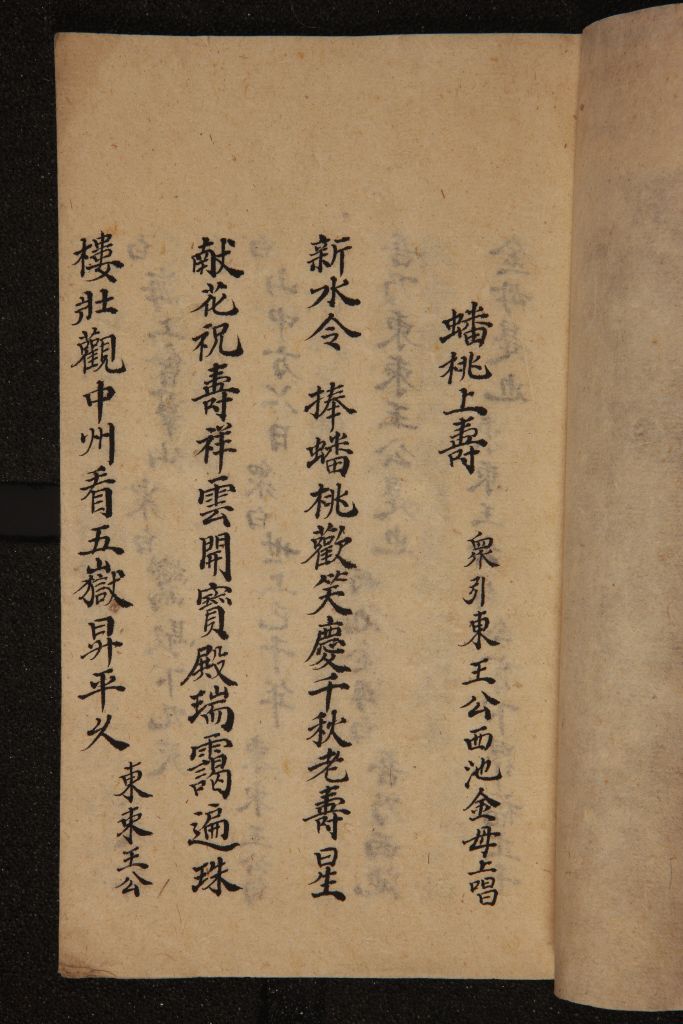 蟠桃上壽 衆引東王公西池金母上唱
新水令 捧蟠桃歡笑慶千秋老壽星
献花祝壽祥雲開寳殿瑞靄遍珠
樓壯觀中州看五嶽昇平久 東東王公